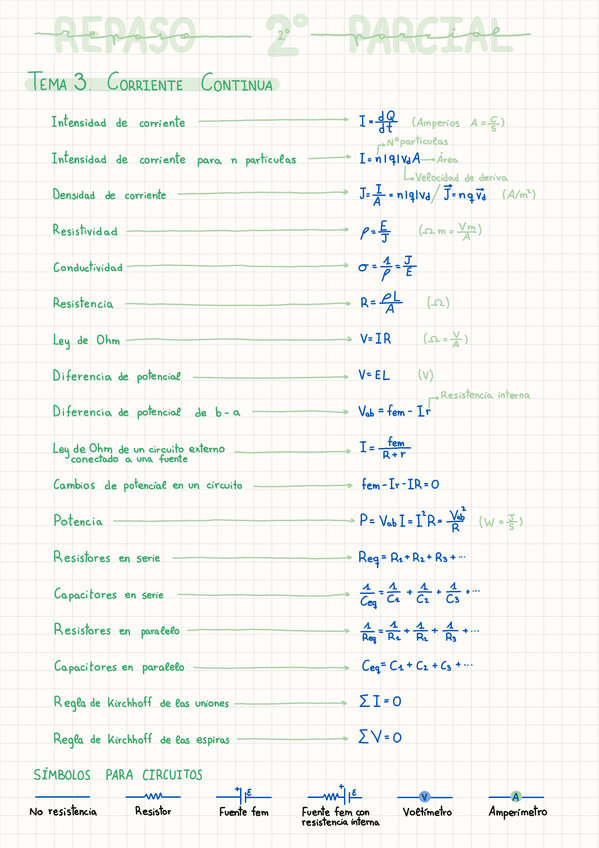 REPASO 2º PARCIAL
repaso 2º parcial
TEMA 3. CORRIENTE CONTINUA
Intensidad de corriente I = dQ/dt (Amperios A = C/s)
Nº partículas
Intensidad de corriente para n partículas I = n|q|vdA Área
Velocidad de deriva
Densidad de corriente J = I/A = n|q|vd / J⃗ = nqv⃗d (A/m²)
Resistividad ρ = E/J (Ωm = Vm/A)
Conductividad σ = 1/ρ = J/E
Resistencia R = ρL/A (Ω)
Ley de Ohm V = IR (Ω = V/A)
Diferencia de potencial V = EL (V)
Resistencia interna
Diferencia de potencial de b-a Vab = fem - Ir
Ley de Ohm de un circuito externo I = fem/R+r
conectado a una fuente
Cambios de potencial en un circuito fem - Ir - IR = 0
Potencia P = VabI = I²R = Vab²/R (W = J/s)
Resistores en serie Req = R1 + R2 + R3 + ...
Capacitores en serie 1/Ceq = 1/C1 + 1/C2 + 1/C3 + ...
Resistores en paralelo 1/Req = 1/R1 + 1/R2 + 1/R3 + ...
Capacitores en paralelo Ceq = C1 + C2 + C3 + ...
Regla de Kirchhoff de las uniones ΣI = 0
Regla de Kirchhoff de las espiras ΣV = 0
SÍMBOLOS PARA CIRCUITOS
+ ε + ε V A
No resistencia Resistor Fuente fem Fuente fem con Voltímetro Amperímetro
resistencia interna